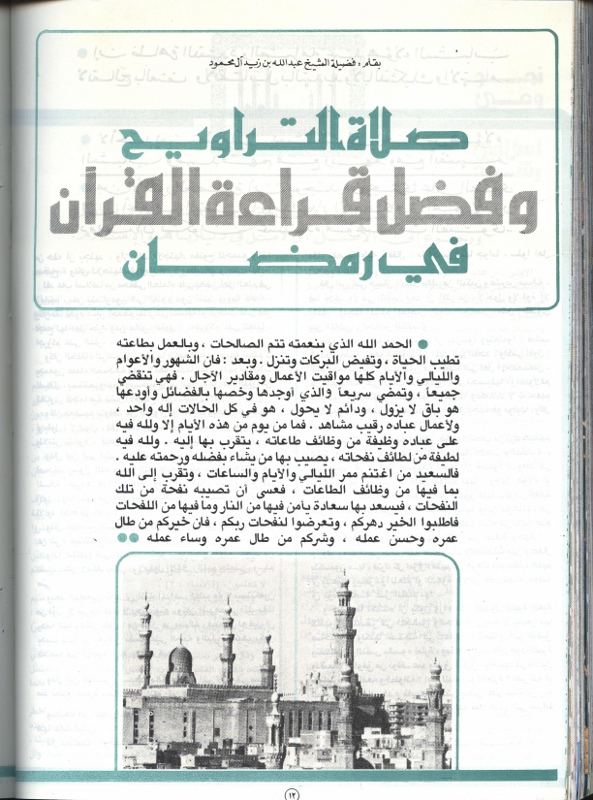 بقلم : فضيلة الشيخ عبدالله بن زيد آل محمود
صلاة التراويح
وفضل قراءة القرآن
في رمضان
● الحمد الله الذي بنعمته تتم الصالحات ، وبالعمل بطاعته
تطيب الحياة ، وتفيض البركات وتنزل . وبعد : فان الشهور والأعوام
والليالي والأيام كلها مواقيت الأعمال ومقادير الآجال . فهي تنقضي
جميعاً ، وتمضي سريعاً والذي أوجدها وخصها بالفضائل وأودعها
هو باق لا يزول ، ودائم لا يحول ، هو في كل الحالات إله واحد ،
ولأعمال عباده رقيب مشاهد . فما من يوم من هذه الأيام إلا ولله فيه
على عباده وظيفة من وظائف طاعاته ، يتقرب بها إليه . ولله فيه
لطيفة من لطائف نفحاته ، يصيب بها من يشاء بفضله ورحمته عليه .
فالسعيد من اغتنم ممر الليالي والأيام والساعات ، وتقرب إلى الله
بما فيها من وظائف الطاعات ، فعسى أن تصيبه نفحة من تلك
النفحات ، فيسعد بها سعادة يأمن فيها من النار وما فيها من اللفحات
فاطلبوا الخير دهركم ، وتعرضوا لنفحات ربكم ، فان خيركم من طال
عمره وحسن عمله ، وشركم من طال عمره وساء عمله ●●
١٣